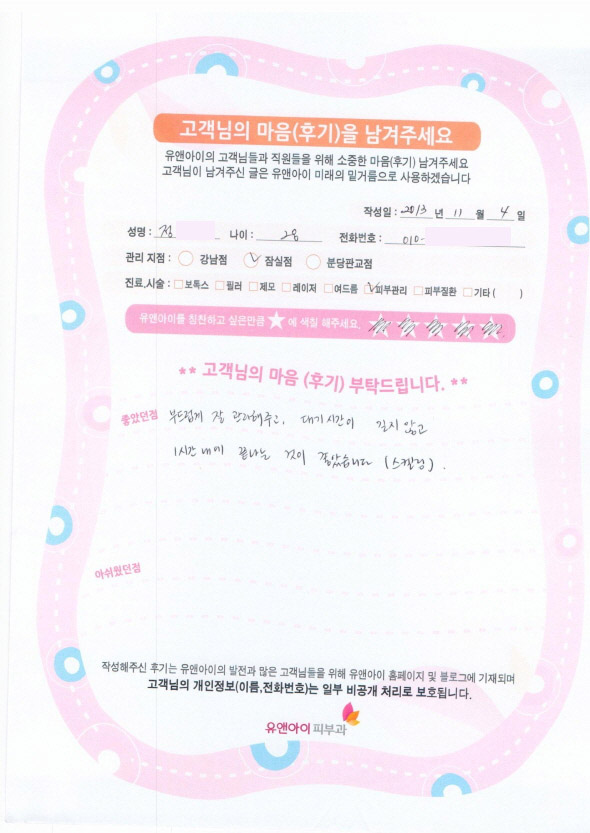 고객님의 마음(후기)을 남겨주세요
유앤아이의 고객님들과 직원들을 위해 소중한 마음(후기) 남겨주세요
고객님이 남겨주신 글은 유앤아이 미래의 밑거름으로 사용하겠습니다
작성일 : 2013 년 11 월 4 일
성명 : 정 나이 : 28 전화번호 : 010-
관리 지점 : 강남점 잠실점 분당판교점
진료,시술 : 보톡스 필러 제모 레이저 여드름 피부관리 피부질환 기타 ( )
유앤아이를 칭찬하고 싶은만큼 ★에 색칠 해주세요.
** 고객님의 마음 (후기) 부탁드립니다. **
좋았던점 부드럽게 잘 관리해주고, 대기시간이 길지 않고
1시간 내에 끝나는 것이 좋았습니다 (스켈링).
아쉬웠던점
작성해주신 후기는 유앤아이의 발전과 많은 고객님들을 위해 유앤아이 홈페이지 및 블로그에 기재되며
고객님의 개인정보(이름,전화번호)는 일부 비공개 처리로 보호됩니다.
유앤아이 피부과